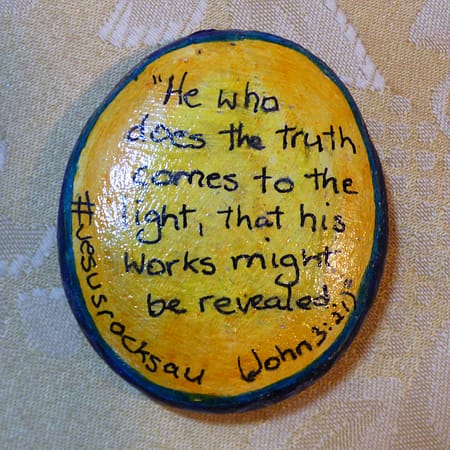 "He who
does the truth
comes to the
light, that his
works might
be revealed."
(John 3:21)
#jesusrocksau